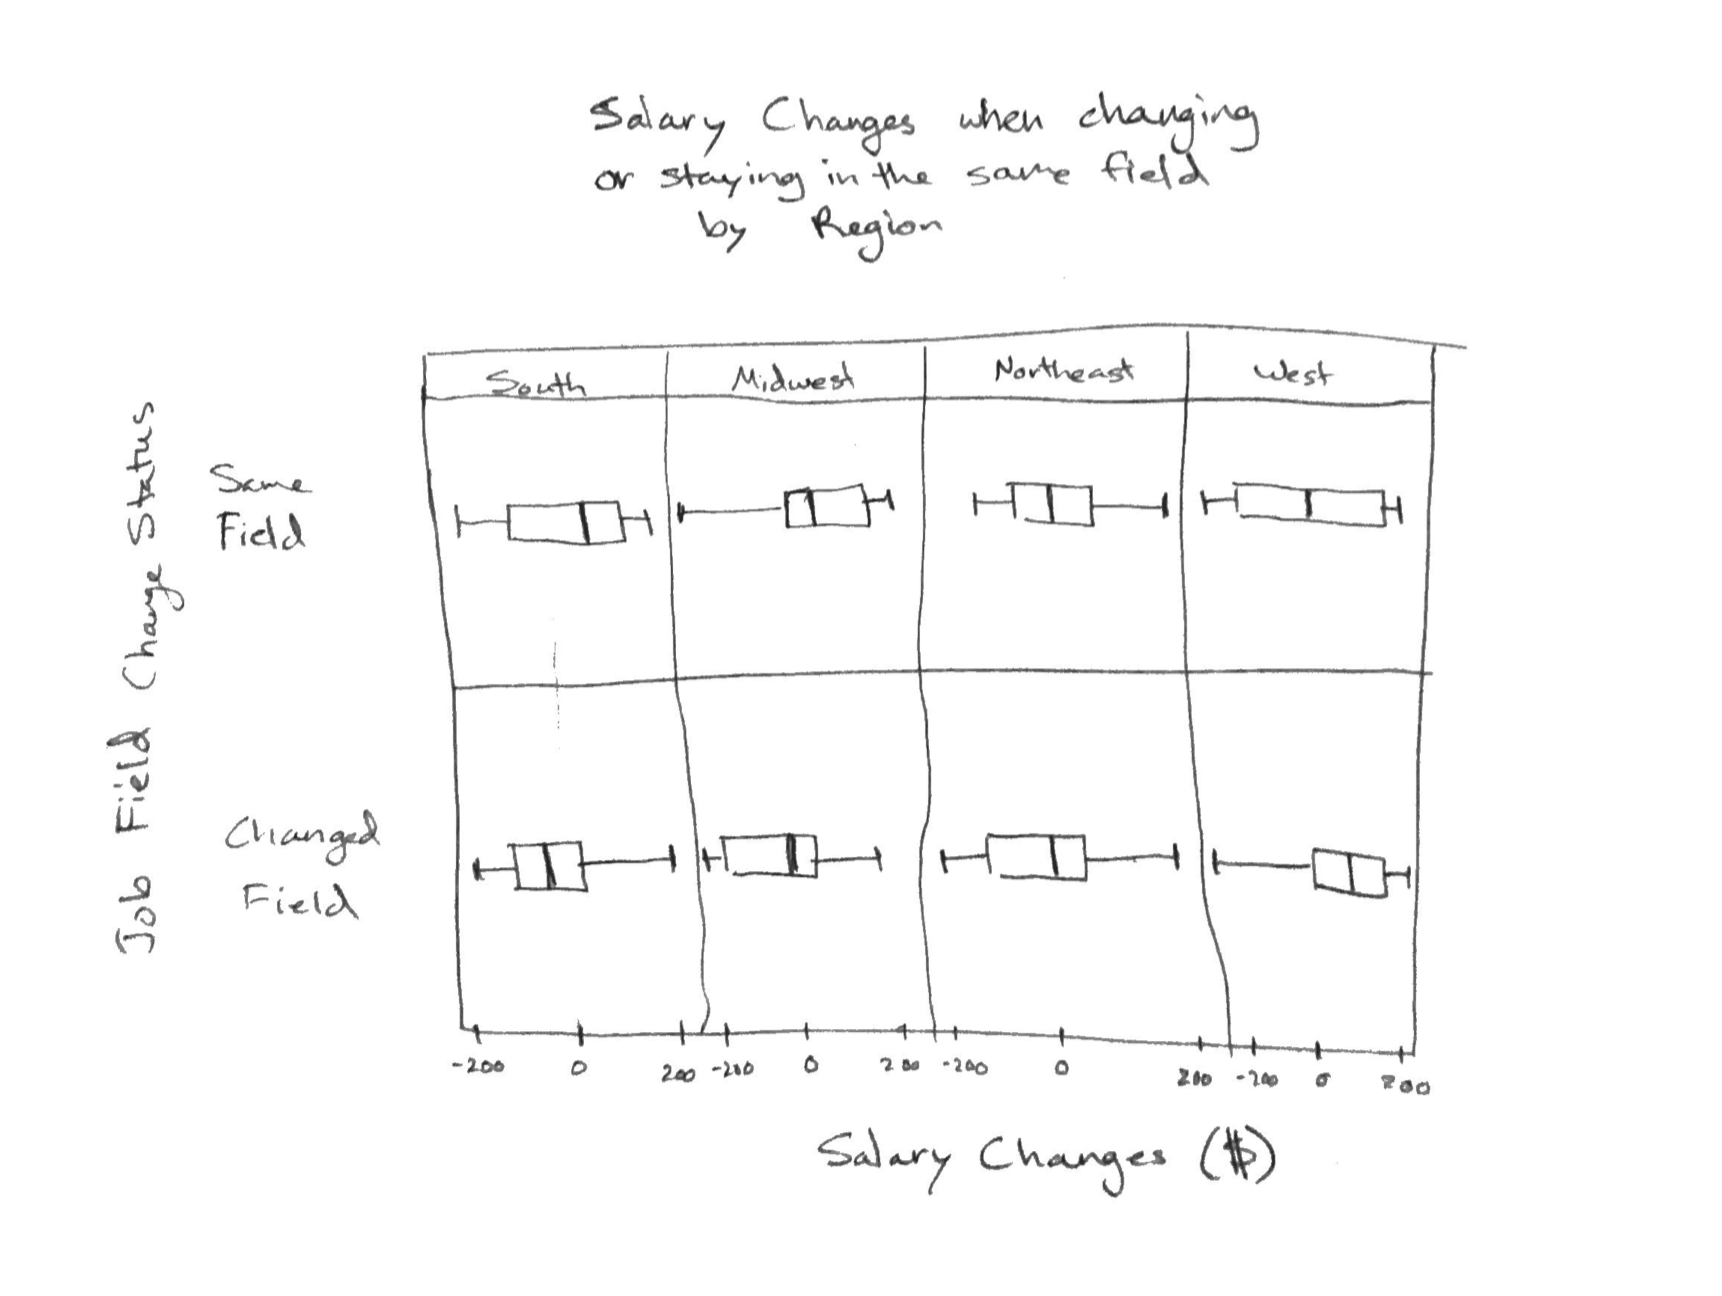 Salary Changes when changing
or staying in the same field
by Region
South Midwest Northeast West
Job Field Change Status
Same
Field
Changed
Field
-200 0 200 -200 0 200 -200 0 200 -200 0 200
Salary Changes ($)